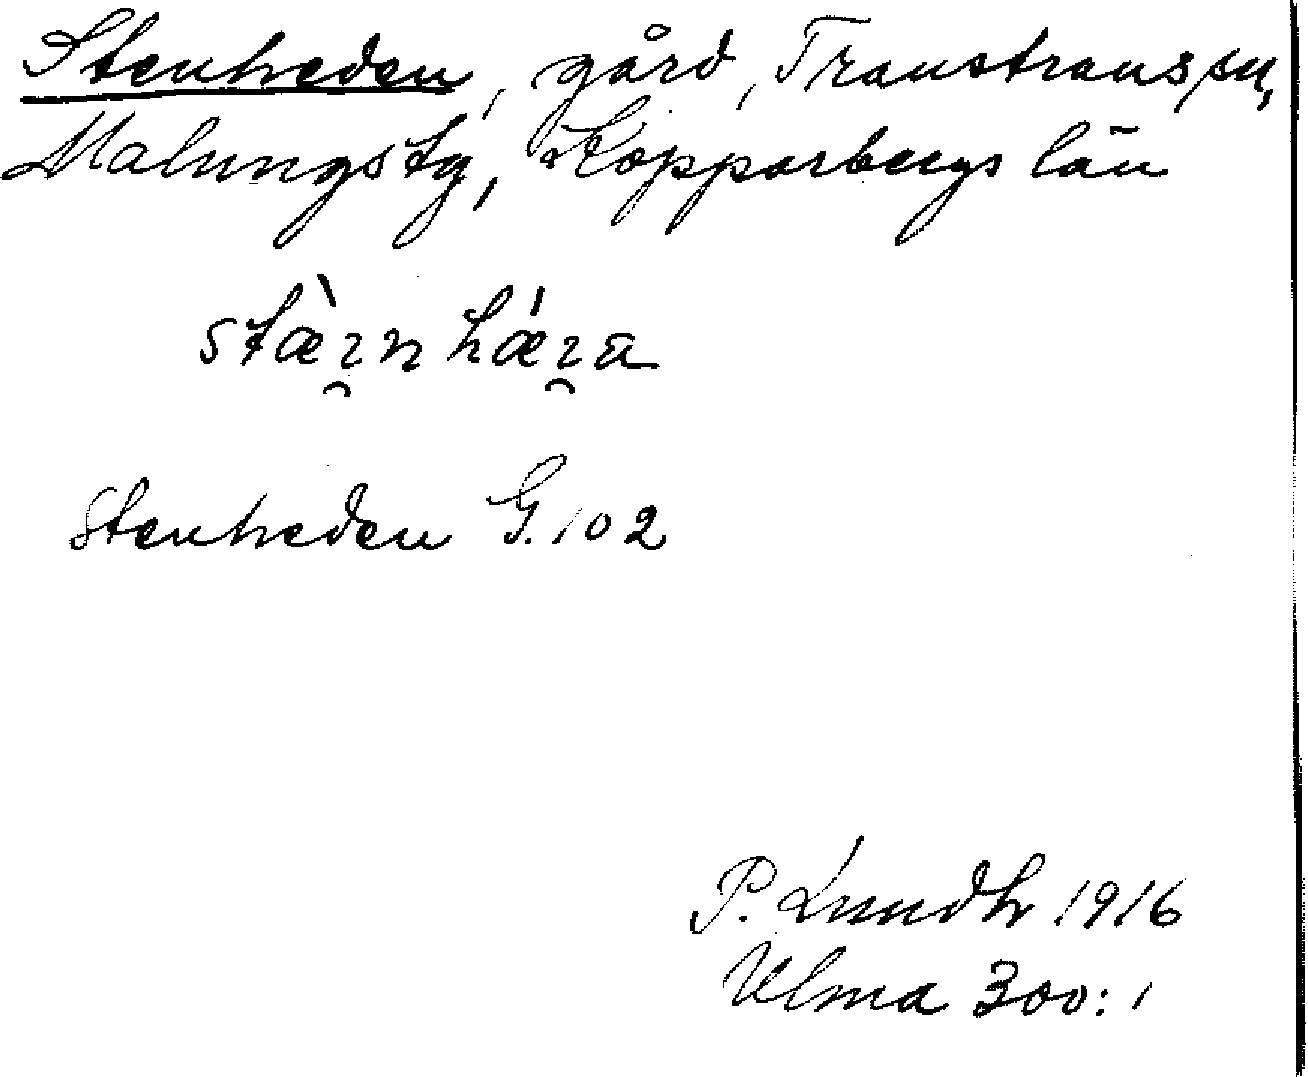 Stenheden, gård, Transtrands sn,
Malungs tg, Kopparbergs län
Stenheden G. 102
P. Lundh 1916
Ulma 300:1